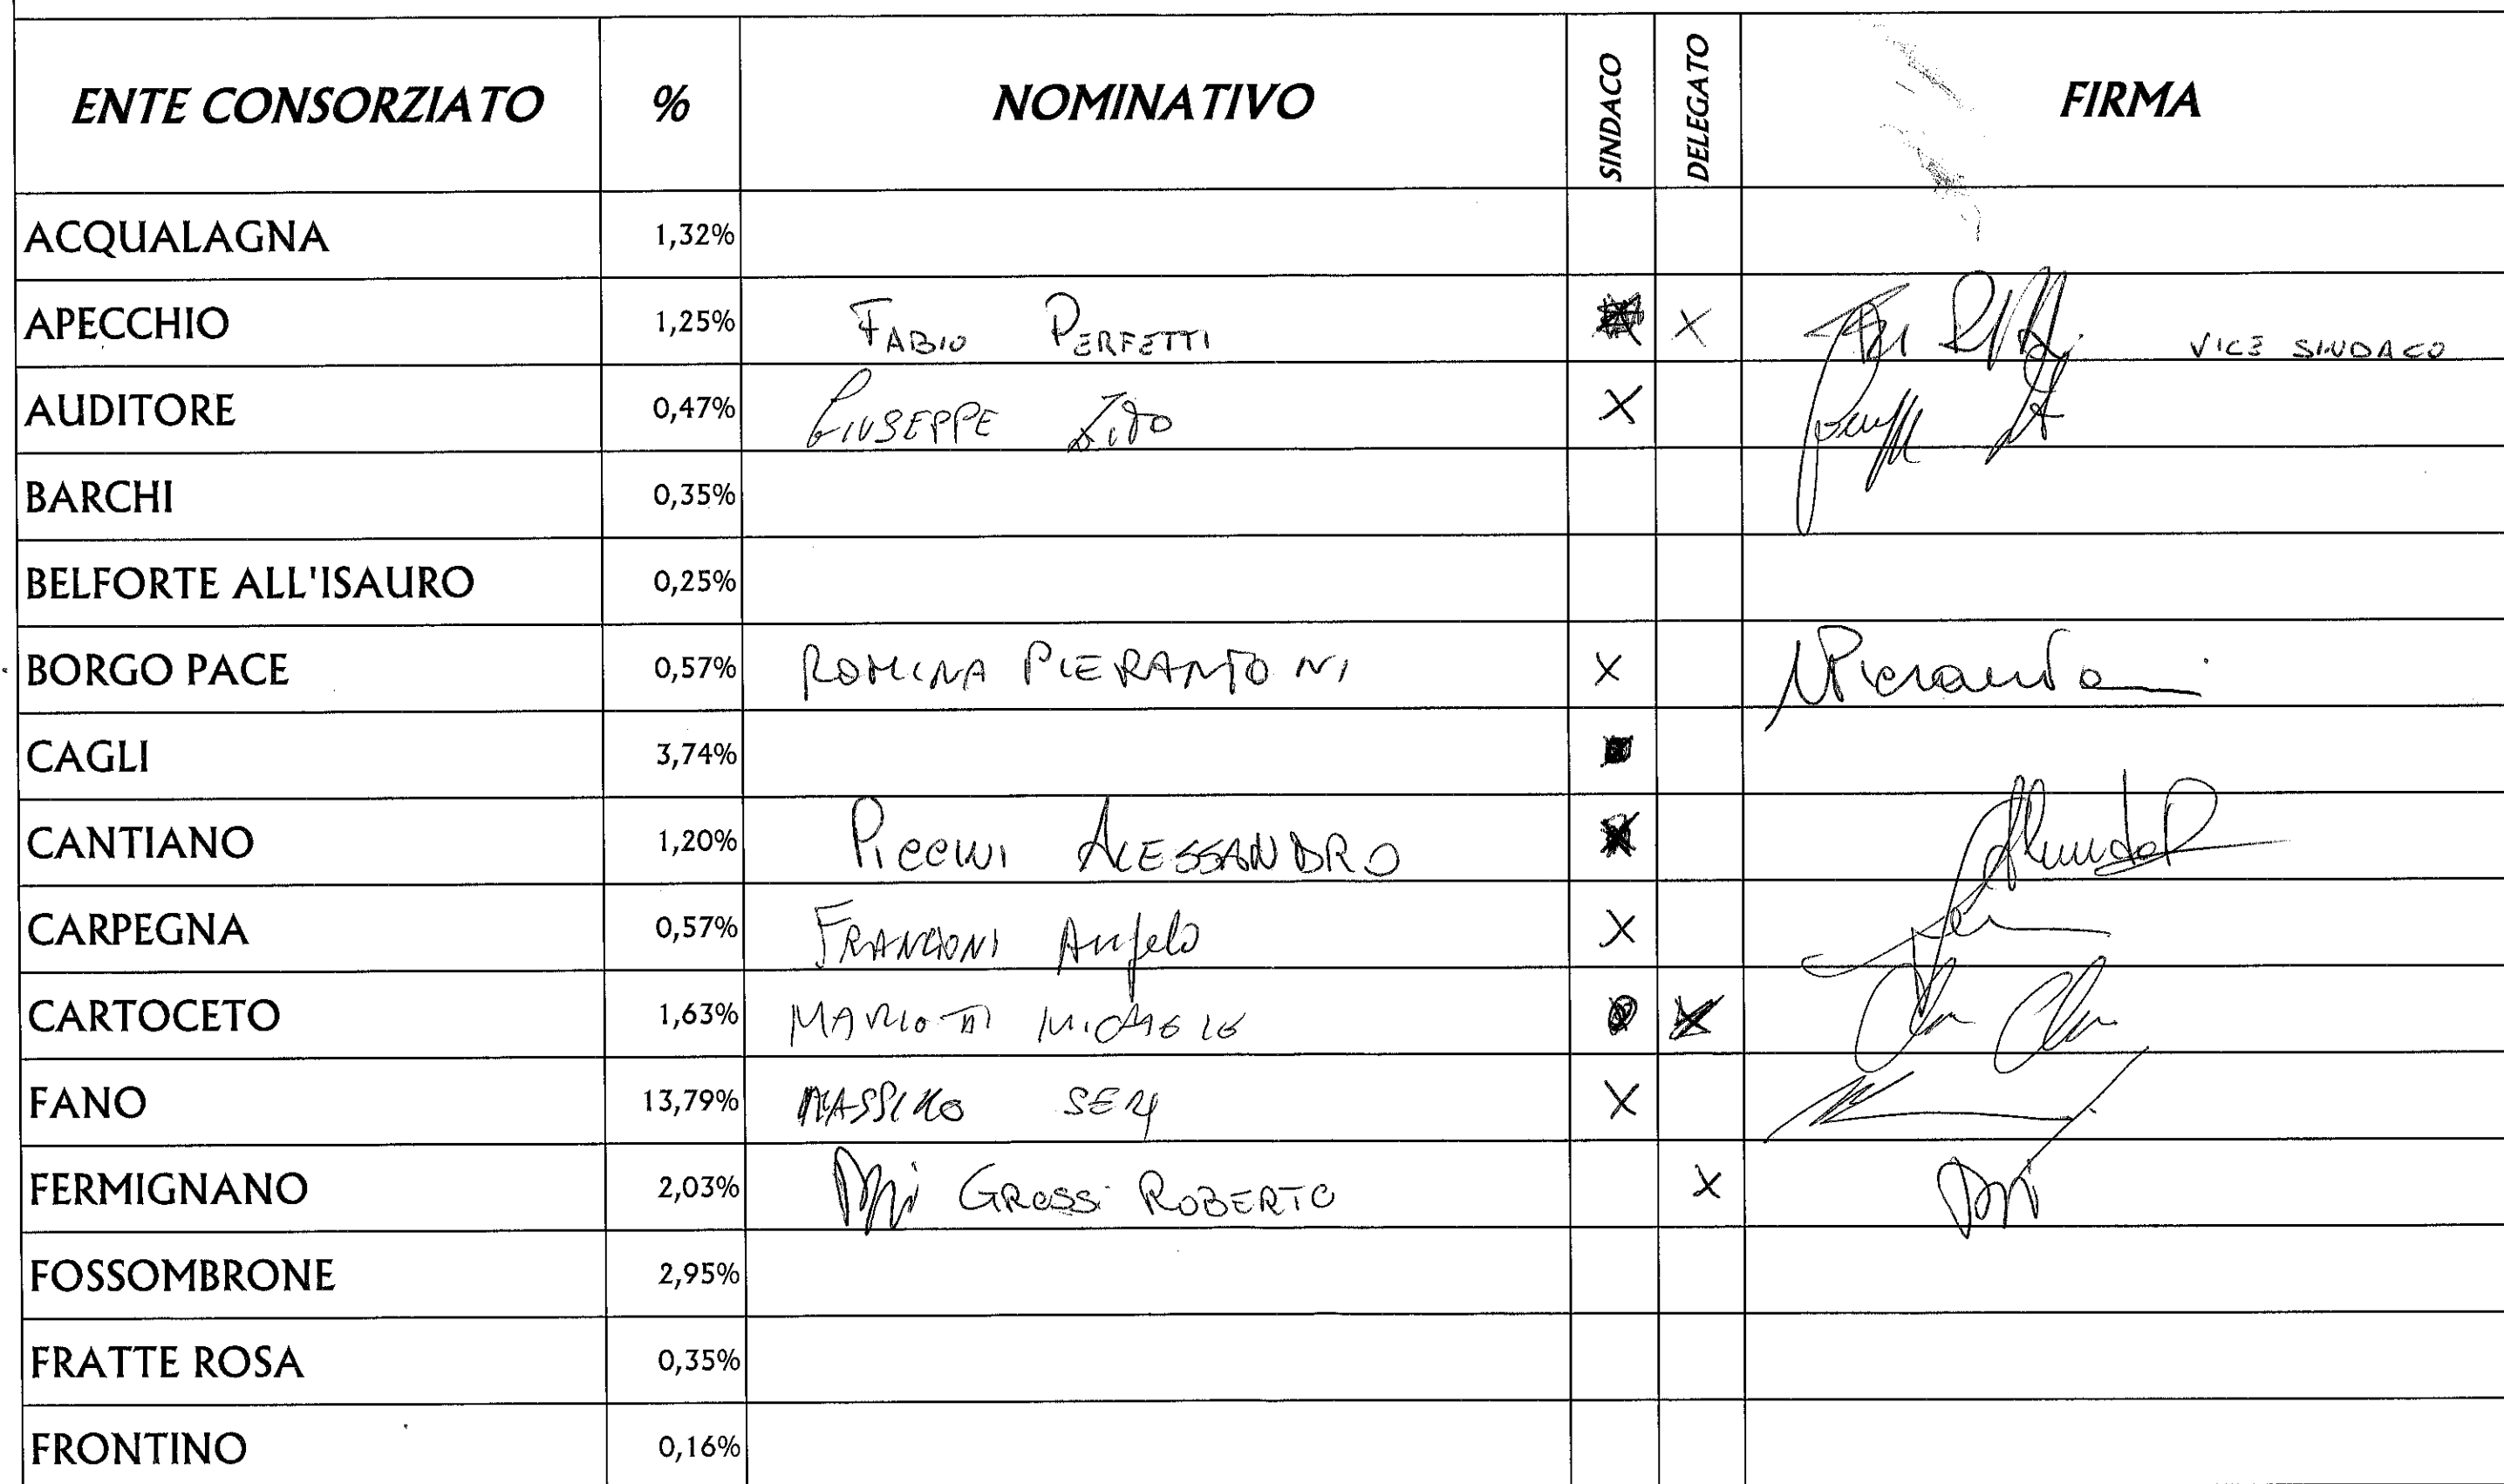 ENTE CONSORZIATO % NOMINATIVO SINDACO DELEGATO FIRMA
ACQUALAGNA 1,32%
APECCHIO 1,25% FABIO PERFETTI X VICE SINDACO
AUDITORE 0,47% GIUSEPPE X
BARCHI 0,35%
BELFORTE ALL'ISAURO 0,25%
BORGO PACE 0,57% ROMINA PIERANTONI X
CAGLI 3,74%
CANTIANO 1,20% PICCINI ALESSANDRO X
CARPEGNA 0,57% FRANCIONI Angelo X
CARTOCETO 1,63% MARIOTTI MICHELE X
FANO 13,79% MASSIMO SERI X
FERMIGNANO 2,03% GROSSI ROBERTO X
FOSSOMBRONE 2,95%
FRATTE ROSA 0,35%
FRONTINO 0,16%